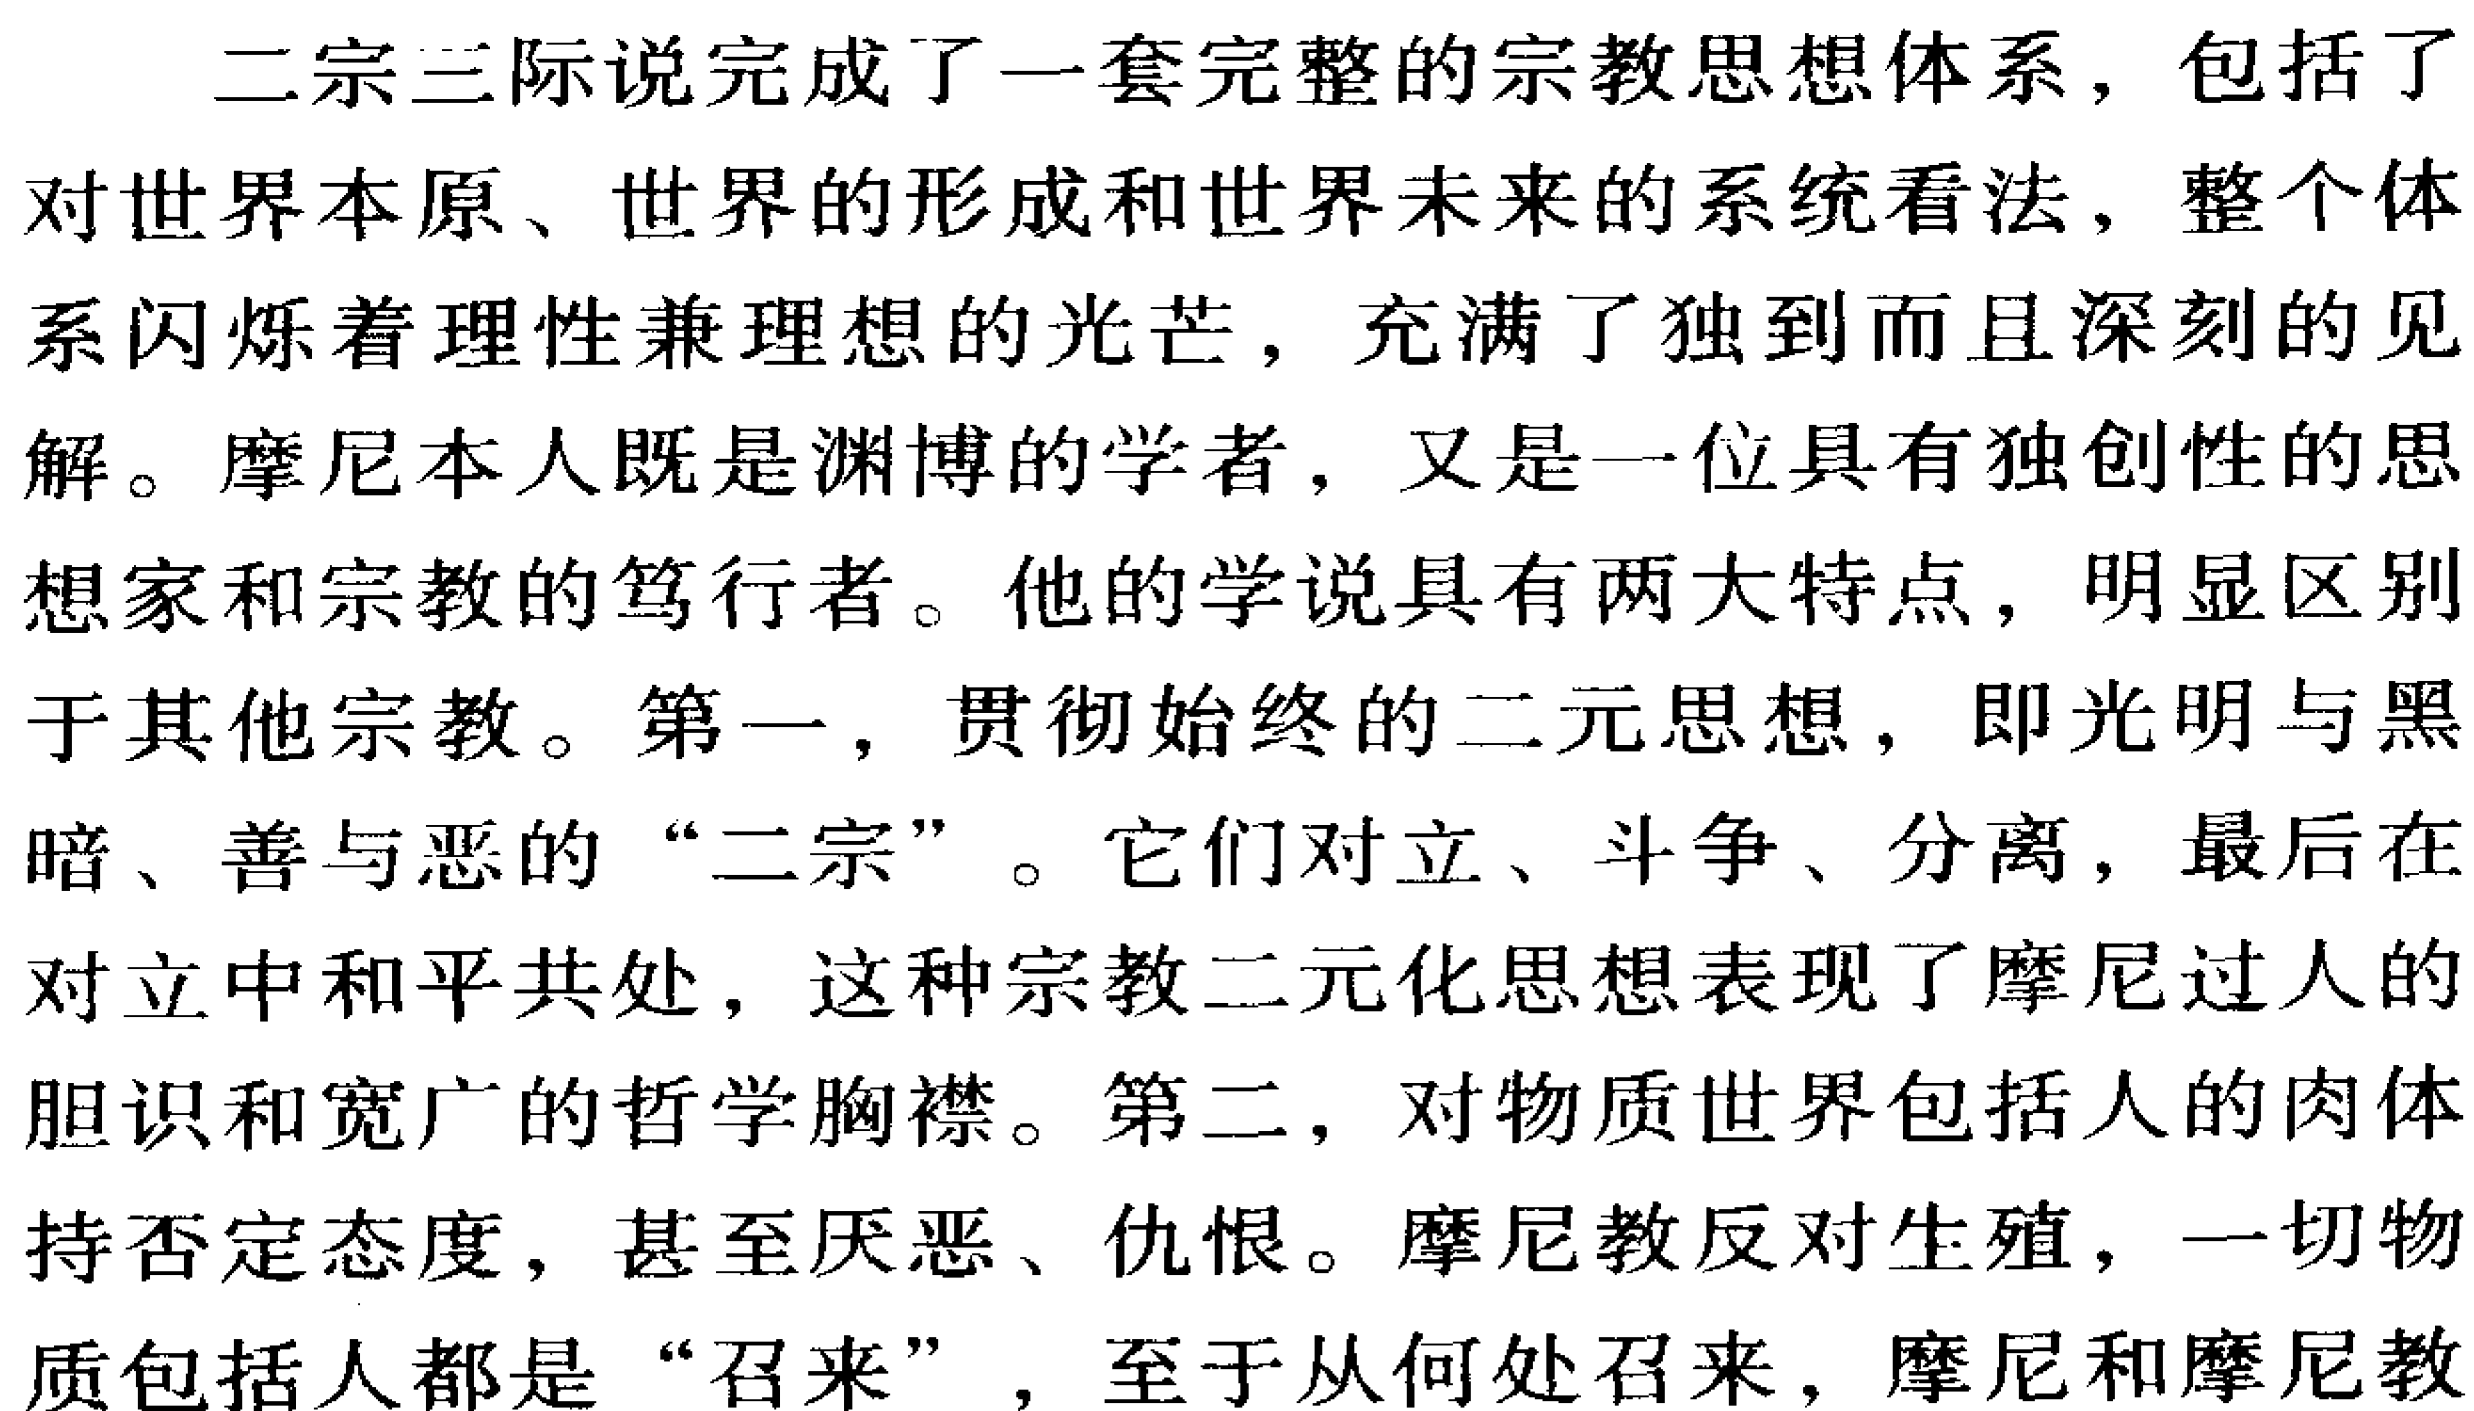 二宗三际说完成了一套完整的宗教思想体系，包括了
对世界本原、世界的形成和世界未来的系统看法，整个体
系闪烁着理性兼理想的光芒，充满了独到而且深刻的见
解。摩尼本人既是渊博的学者，又是一位具有独创性的思
想家和宗教的笃行者。他的学说具有两大特点，明显区别
于其他宗教。第一，贯彻始终的二元思想，即光明与黑
暗、善与恶的“二宗”。它们对立、斗争、分离，最后在
对立中和平共处，这种宗教二元化思想表现了摩尼过人的
胆识和宽广的哲学胸襟。第二，对物质世界包括人的肉体
持否定态度，甚至厌恶、仇恨。摩尼教反对生殖，一切物
质包括人都是“召来”，至于从何处召来，摩尼和摩尼教